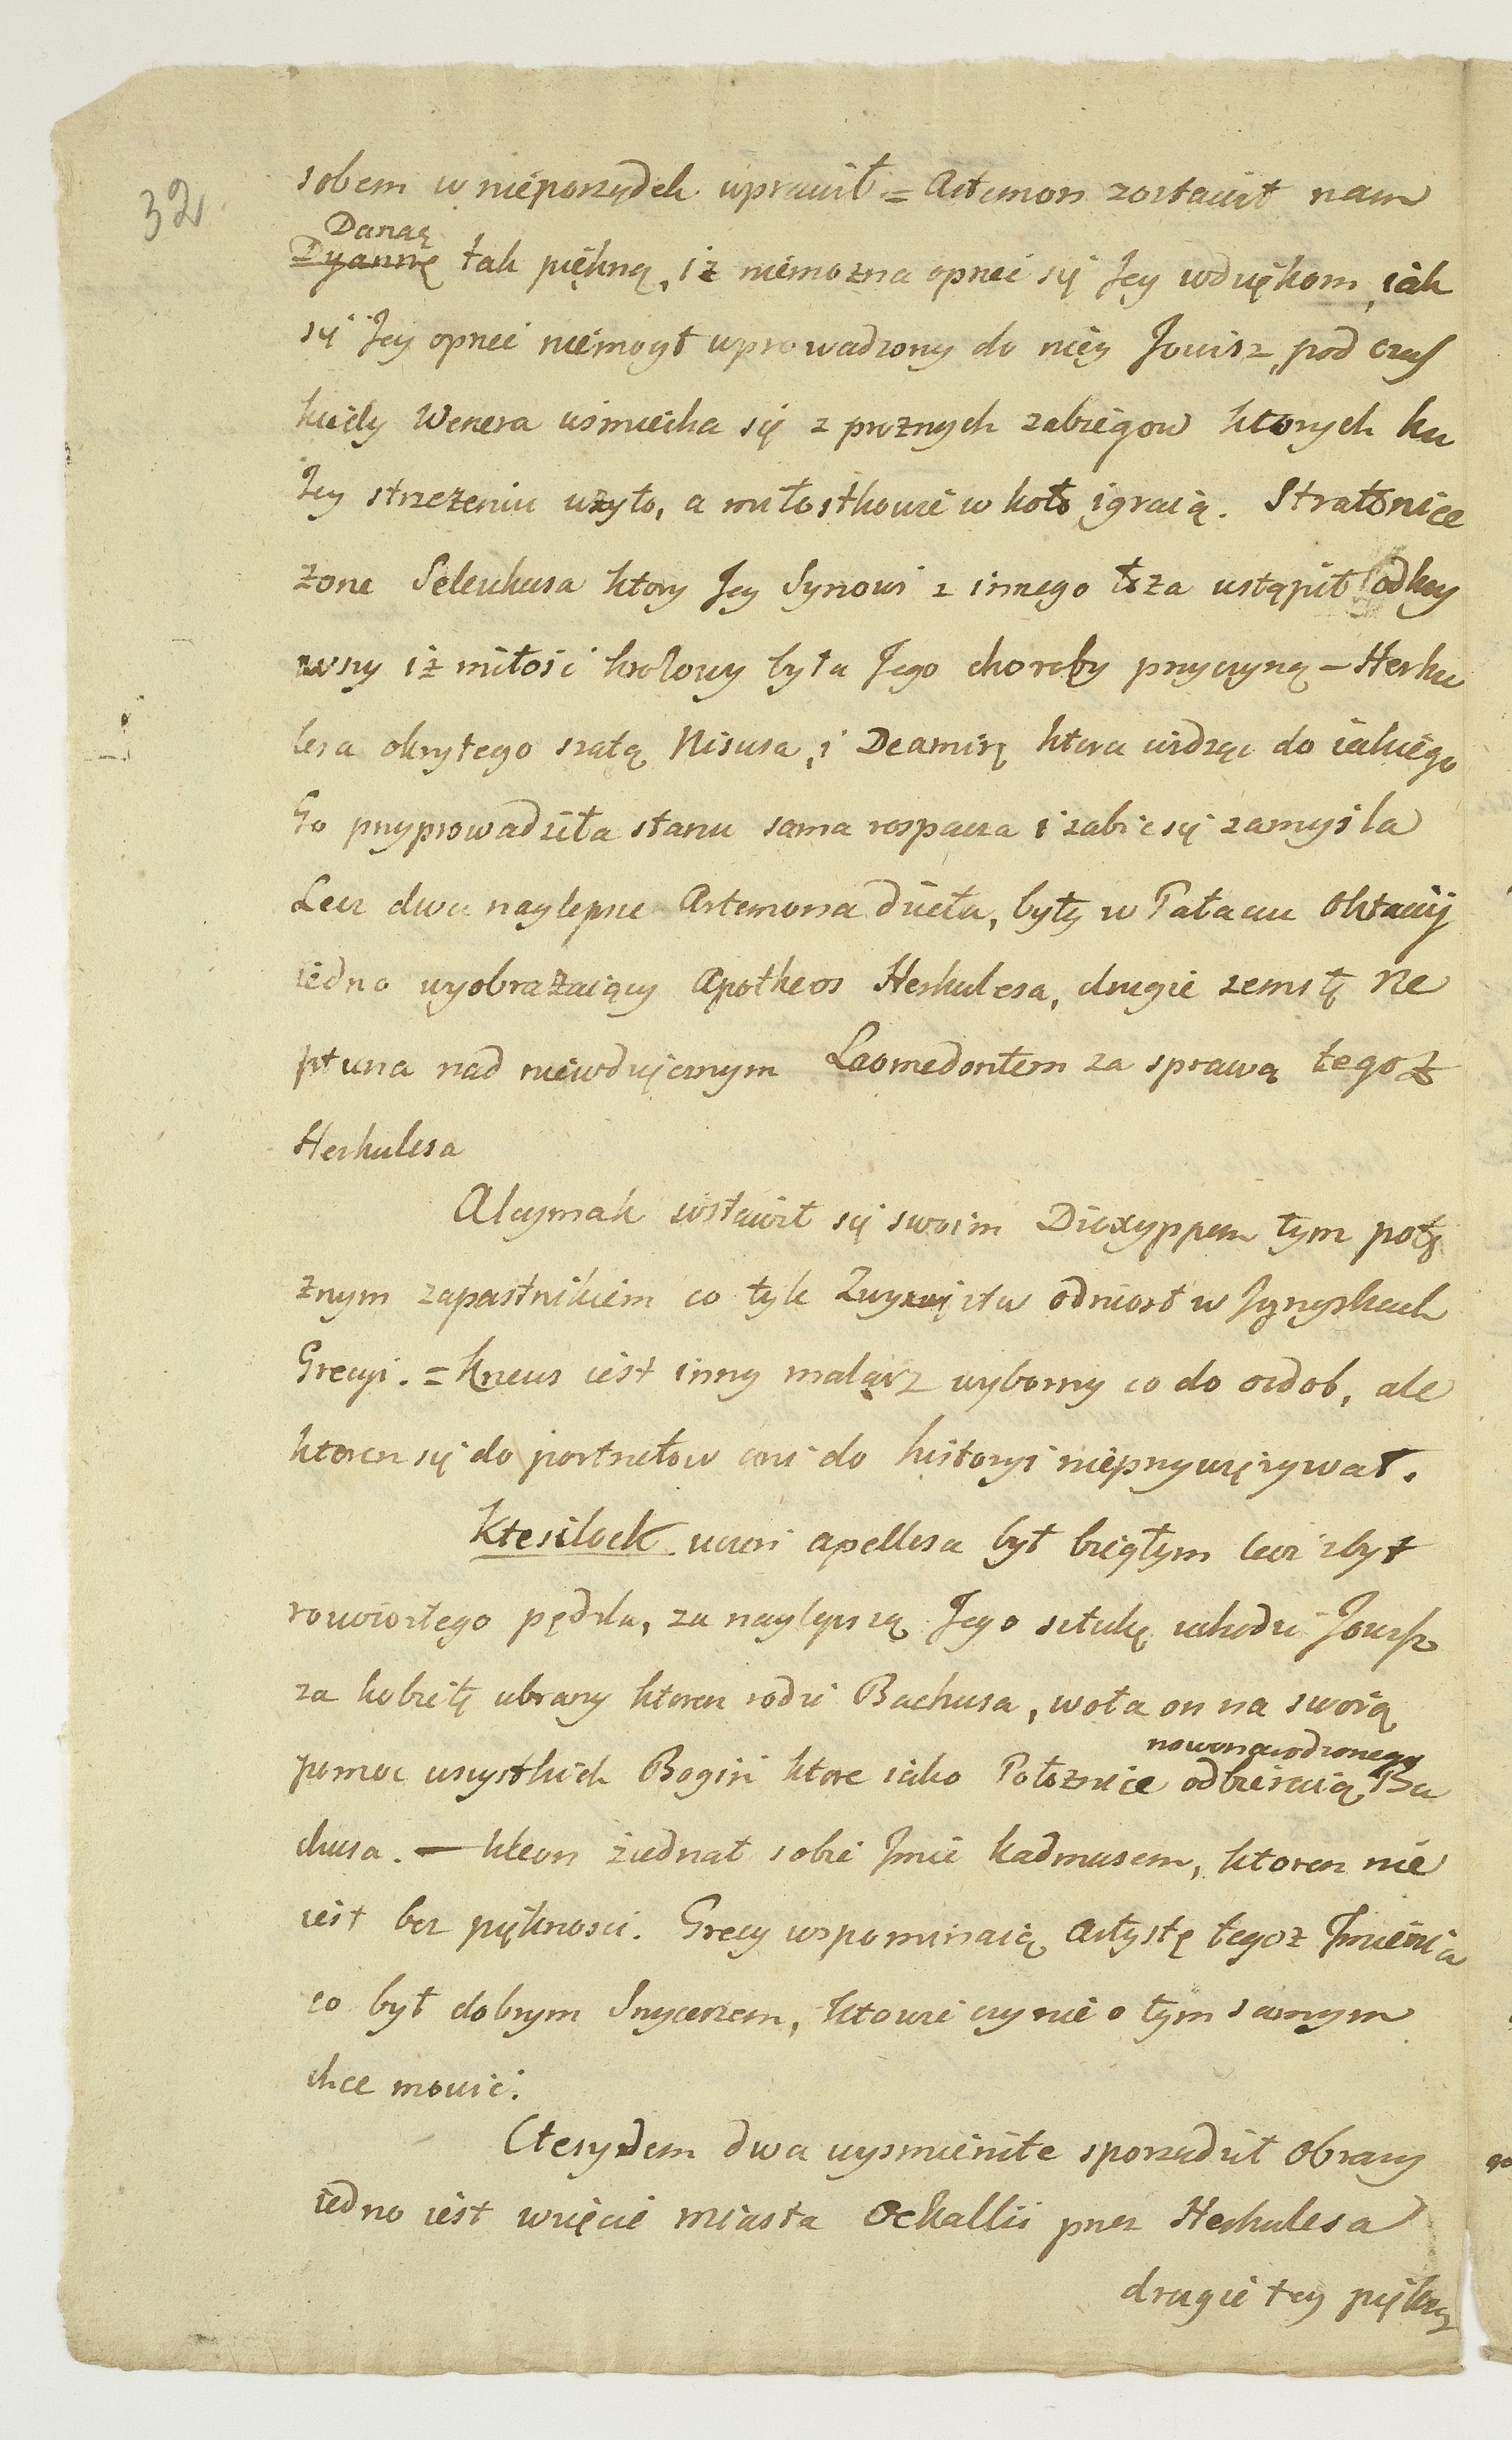 32
sobem w nieporządek wprawił = Artemon zostawił nam
Danaę
Dyannę tak piękną, iż niemozna oprzeć się Jey wdziękom, iak
się Jey oprzeć niemogł wprowadzony do niey Jowisz, pod czas
kiedy Wenera uśmiecha się z prożnych zabiegow ktorych ku
Jey strzeżeniu użyto, a miłostkowie w koło igraią. Stratonice
żone Seleukusa ktory Jey Synowi z innego łoża ustąpił odkry
wszy iż miłość krolowy była Jego choroby przyczyną – Herku
lesa okrytego szatą Nisusa, i Deamirę ktora widząc do iakiego
Go przyprowadziła stanu sama rospacza i zabic się zamyśla
Lecz dwa naylepsze Artemona dzieła, były w Pałacu Oktawij
iedno wyobrażaiący Apotheos Herkulesa, drugie zemstę Ne
ptuna nad niewdzięcznym Laomedontem za sprawą tegoż
Herkulesa
Alcymak wsławił się swoim Dioxyppem tym potę
żnym zapastnikiem co tyle Zwycięstw odniosł w Jgrzyskach
Grecyi. = Kneus iest inny malarz wyborny co do ozdob, ale
ktoren się do portretow ani do historyi nieprzywięzywał.
Ktesilock uczeń Apellesa był biegłym lecz zbyt
rozwiozłego pędzla, za naylepszą Jego sztukę uchodzi Jowisz
za kobietę ubrany ktoren rodzi Bachusa, woła on na swoią
nowonarodzonego
pomoc wszystkich Bogiń ktore iako Położnice odbieraią Ba
chusa. — Kleon ziednał sobie Jmie Kadmusem, ktoren nie
iest bez piękności. Grecy wspominaią Artystę tegoż Jmienia
co był dobrym Snycerzem, kto wie czy nie o tym samym
chce mowić.
Ctesydem dwa wysmienite sporządził Obrazy
iedno iest wzięcie miasta Oekallii przez Herkulesa
drugie tey piękny